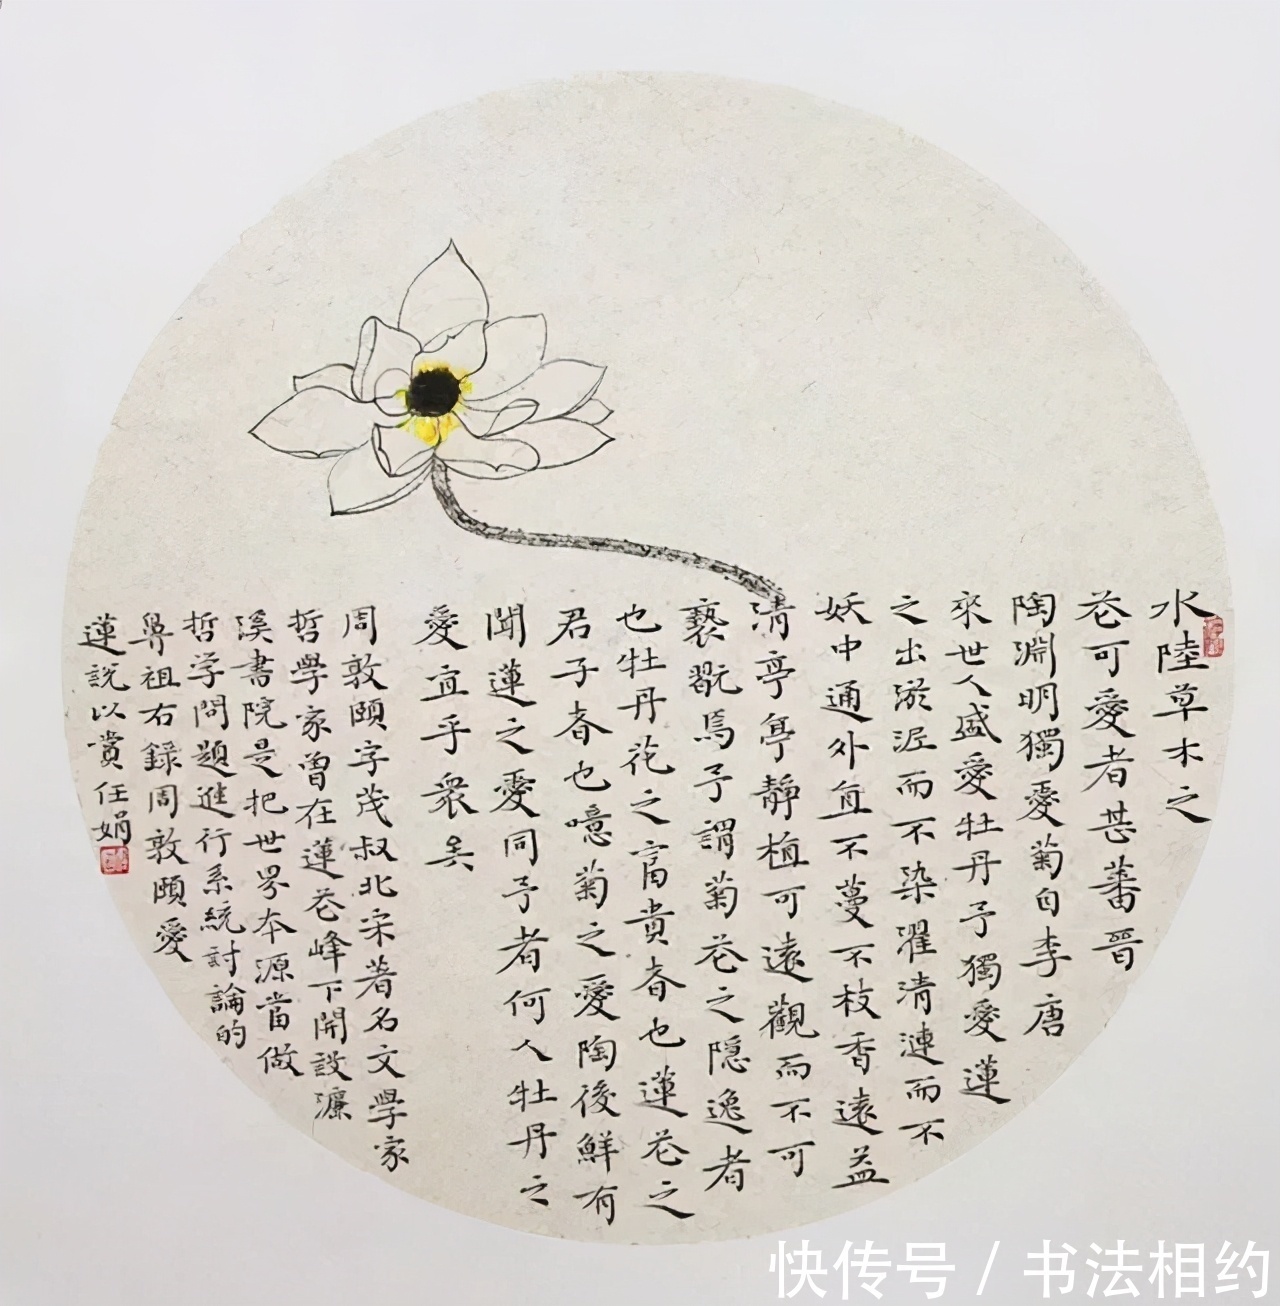 水陸草木之
苍可愛者甚蕃晉
陶淵明獨愛菊自李唐
來世人盛愛牡丹予獨愛蓮
之出淤泥而不染濯清漣而不
妖中通外直不蔓不枝香遠益
清亭亭靜植可遠觀而不可
褻翫焉予謂菊苍之隱逸者
也牡丹花之富貴者也蓮苍之
君子者也噫菊之愛陶後鮮有
聞蓮之愛同予者何人牡丹之
愛宜乎衆矣
周敦頤字茂叔北宋著名文學家
哲學家曾在蓮苍峰下開設濂
溪書院是把世界本源當做
哲学問題進行系統討論的
鼻祖右録周敦頤愛
蓮説以賞任娟
快传号 / 书法相约